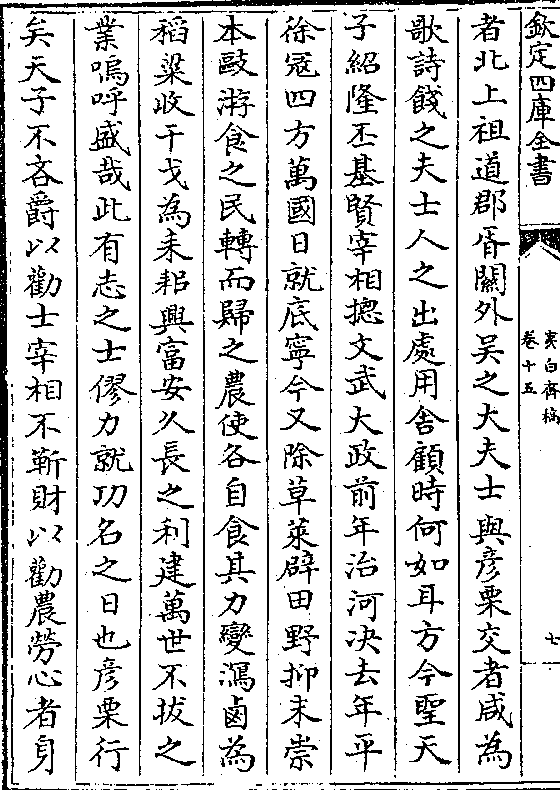 欽定四庫全書
夷白齋稿
卷十五
七
者北上祖道郡胥關外吳之大夫士與彥栗交者咸為
歌詩餞之夫士人之出處用舍顧時何如耳方今聖天
子紹隆丕基賢宰相摠文武大政前年治河決去年平
徐冦四方萬國日就底寧今又除草萊辟田野抑末崇
本敺游食之民轉而歸之農使各自食其力變潟鹵為
稻粱收干戈為耒耜興富安久長之利建萬世不拔之
業嗚呼盛哉此有志之士僇力就功名之日也彥栗行
矣天子不吝爵以勸士宰相不靳財以勸農勞心者身